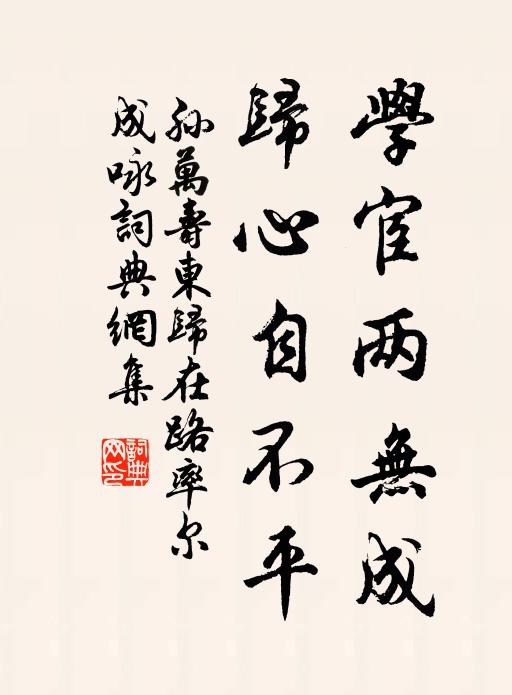 學宦两無成
歸心自不平
孙萬壽東歸在路率尔
成咏詞典網集
詞典网印